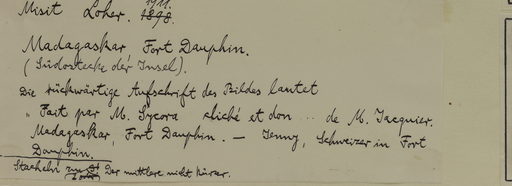 Misit Loher. 1911.
1898.
Madagaskar, Fort Dauphin.
(Südostecke der Insel).
Die rückwärtige Aufschrift des Bildes lautet
„Fait par M. Sycora cliché et don ... de M. Jacquier.
Madagaskar, Fort Dauphin. — Jenny, Schweizer in Fort
Dauphin.
Stacheln Der mittlere nicht kürzer.